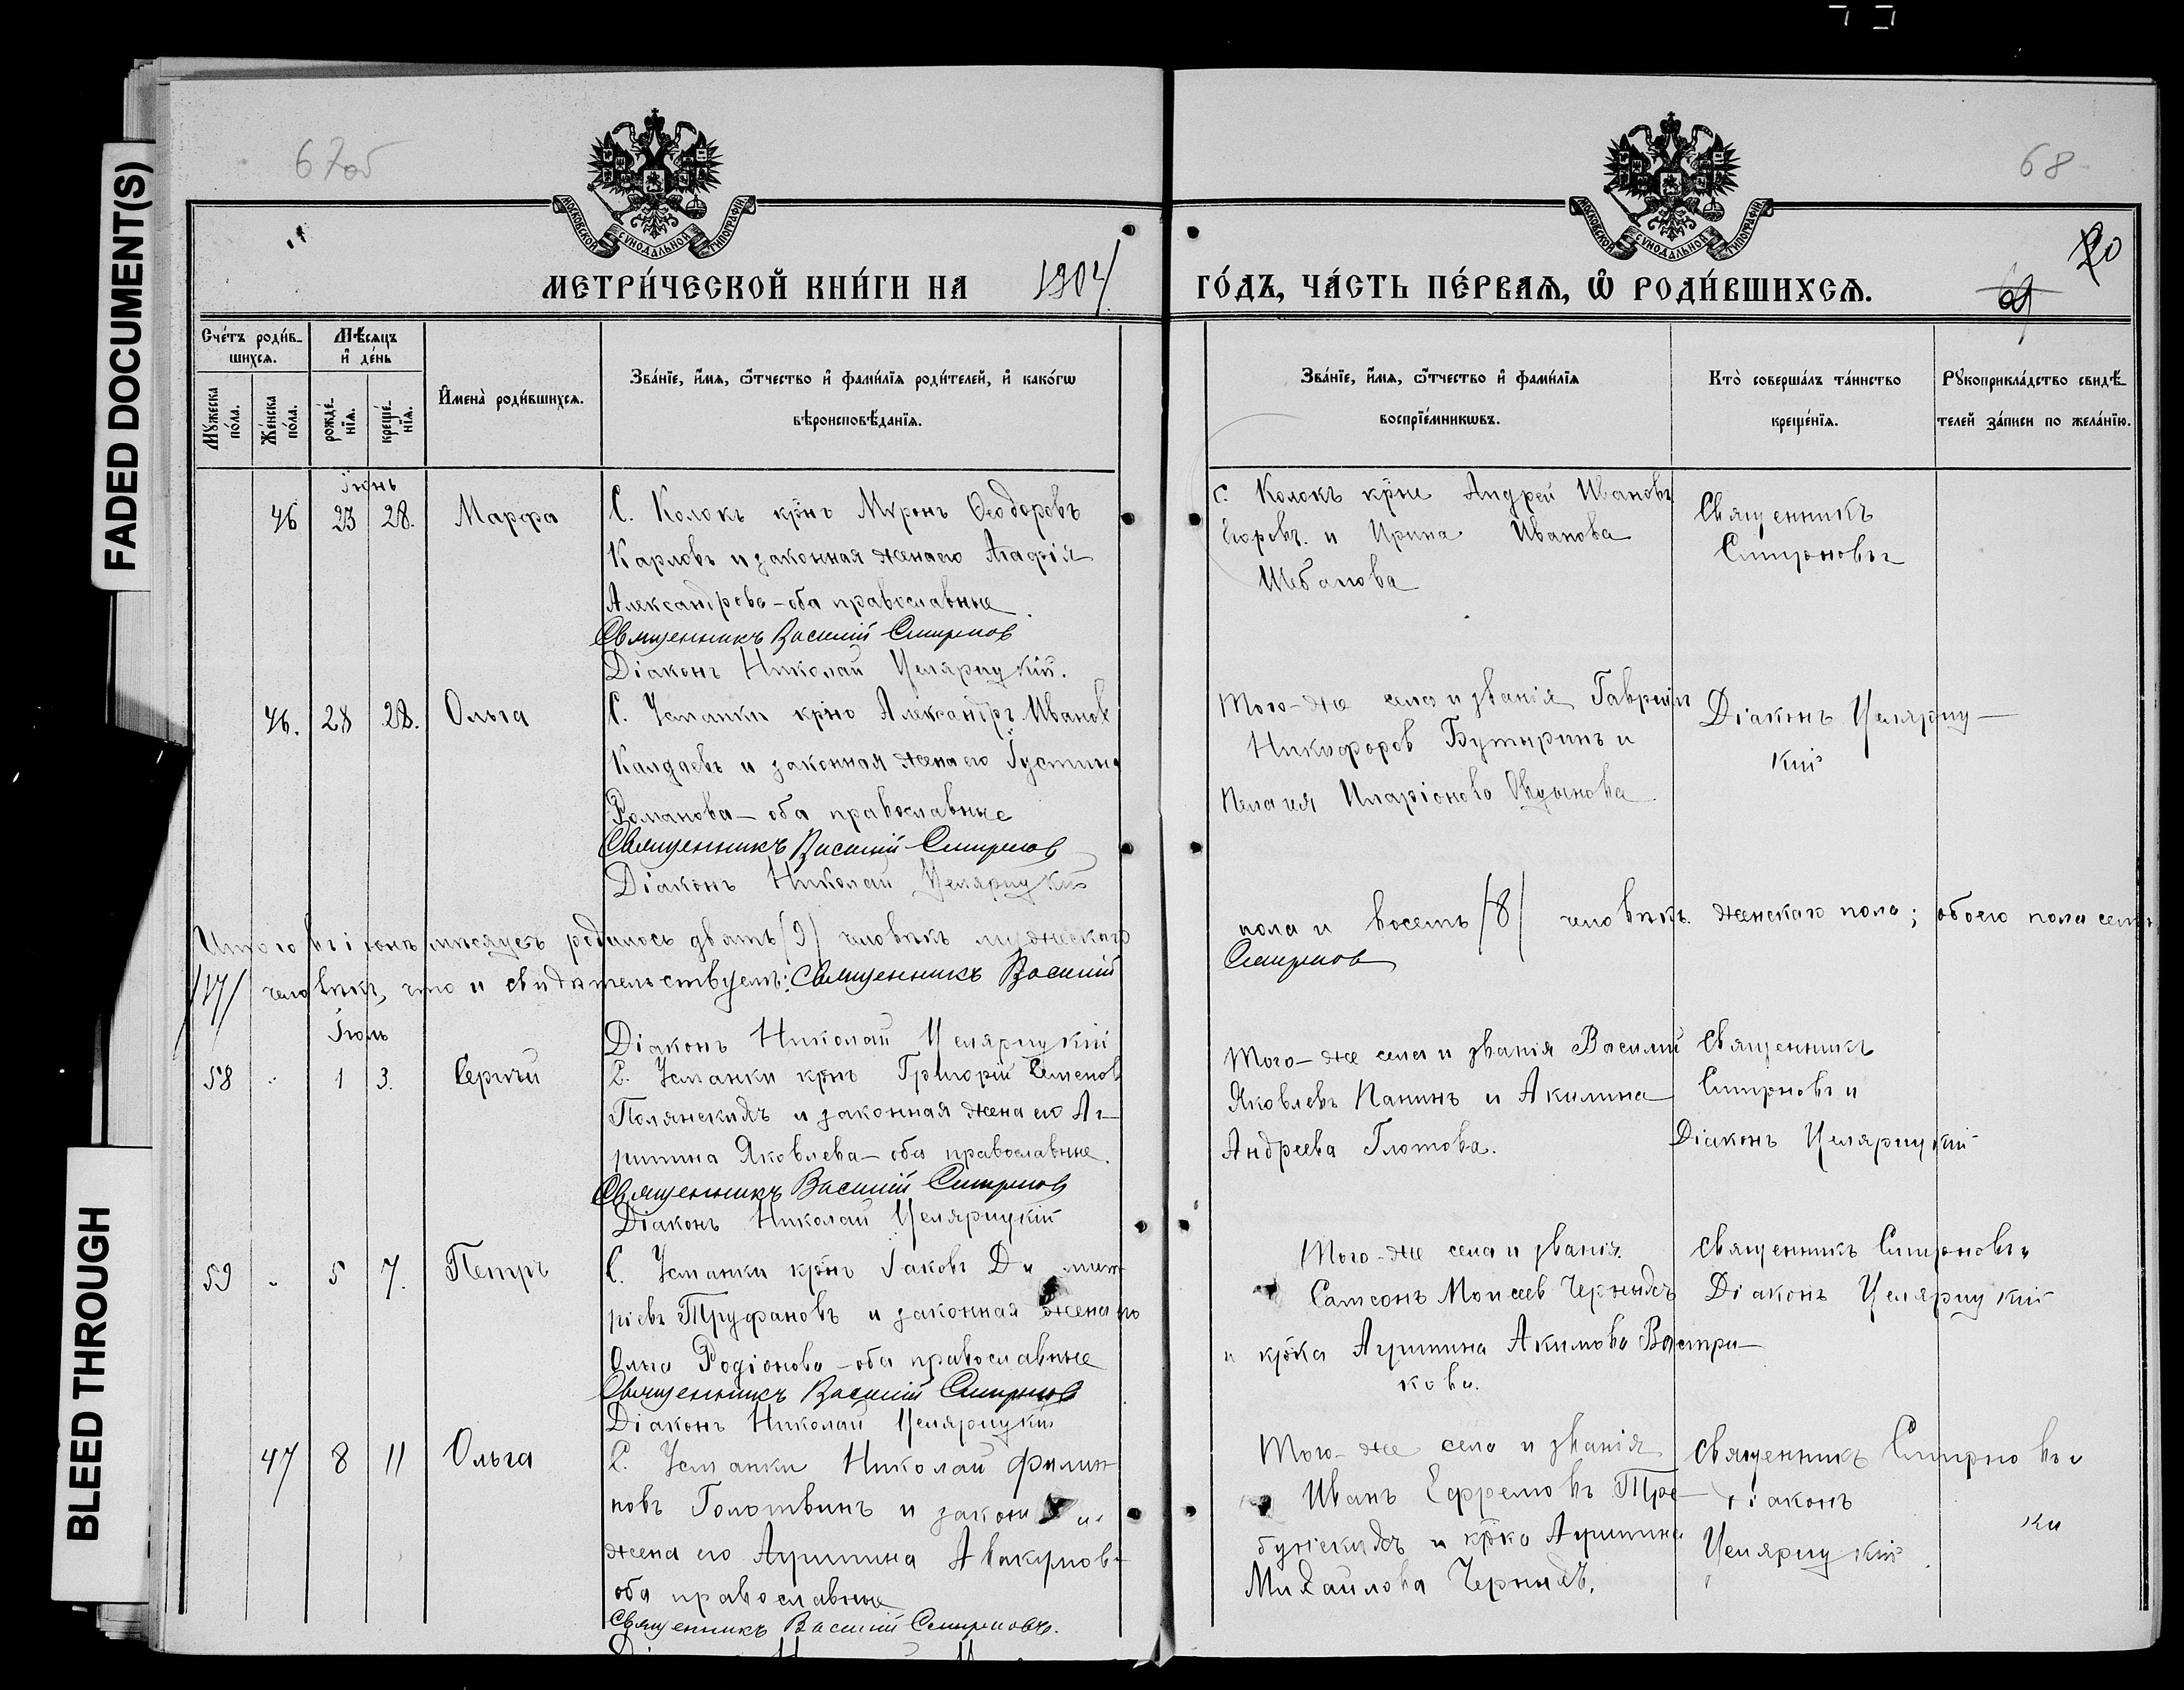 FADED DOCUMENT(S)
BLEED THROUGH
67об
68
МОСКОВСКОЙ СУНОДАЛЬНОЙ ТИПОГРАФІИ
МОСКОВСКОЙ СУНОДАЛЬНОЙ ТИПОГРАФІИ
20
69
МЕТРИ́ЧЕСКОЙ КНИ́ГИ НА 1904 ГО́ДЪ, ЧА́СТЬ ПЕ́РВАѦ, Ѡ҆ РОДИ́ВШИХСѦ.
Сче́тъ роди́в-
шихсѧ.
Мꙋ́жеска по́ла.
Же́нска по́ла.
Мѣ́сѧцъ
и҆ де́нь
рожде́-
нїѧ.
креще́-
нїѧ.
И҆мена̀ роди́вшихсѧ.
Зва́нїе, и҆́мѧ, ѻ҆́тчество и҆ фами́лїѧ роди́телей, и҆ како́гѡ
вѣроисповѣ́данїѧ.
Зва́нїе, и҆́мѧ, ѻ҆́тчество и҆ фами́лїѧ
воспрїе́мникѡвъ.
Кто̀ соверша́лъ та́инство
креще́нїѧ.
Рꙋкоприкла́дство свидѣ́-
телей за́писи по жела́нїю.
Іюнь
46 23 28. Марфа
С. Колокъ крн̃ъ Мѵронъ Ѳеодоровъ
Карловъ и законная жена его Агафія
Александрова - оба православные
Священникъ Василій Смирнов
Діаконъ Николай
С. Колокъ крн̃е Андрей Ивановъ
Егоровъ. и Ирина Иванова
Шебанова
Священникъ
Смирновъ
46. 28 28. Ольга
С. Усманки крн̃о Александръ Иванов
Калдаевъ и законная жена его Іустина
Романова - оба православные
Священникъ Василій Смирнов
Діаконъ Николай
Того-же села и званія Гавріилъ
Никифоров Бутыринъ и
Пелагия Иларіонова
Діаконъ
Итого въ іюнѣ мѣсяцѣ родилось девять (9) человѣкъ мужескаго
пола и восемь /8/ человѣкъ женскаго пола; обоего пола семн
/17/ человѣкъ, что и свидѣтельствуемъ: Священникъ Василій
Смирнов
Діаконъ Николай
Іюль
58 " 1 3. Сергѣй
С. Усманки крн̃ъ Григорій Семенов
Полянскихъ и законная жена его Аг-
рипина Яковлева - оба православные.
Священникъ Василій Смирнов
Діаконъ Николай
Того-же села и званія Василій
Яковлевъ Панинъ и Акилина
Андреева Глотова.
Священникъ
Смирновъ и
Діаконъ
59 " 5 7. Петръ
С. Усманки крн̃ъ Іаковъ Димит
ріевъ Труфановъ и законная жена его
Ольга Родіонова - оба православные
Священникъ Василій Смирнов
Діаконъ Николай
Того-же села и званія
Самсонъ Моисеев Черныхъ
и кр̃ка Агрипина Акимова Вастри-
кова.
Священникъ Смирновъ и
Діаконъ
47 8 11 Ольга
С. Усманки Николай Филип
повъ Голотвинъ и закон
жена его Агрипина Авакумов-
оба православные
Священникъ Василій Смирновъ.
Того-же села и званія
Иванъ Ефремовъ Тре-
бунскихъ и кр̃ка Агрипина
Михайлова Черныхъ.
Священникъ Смирновъ и
Діаконъ